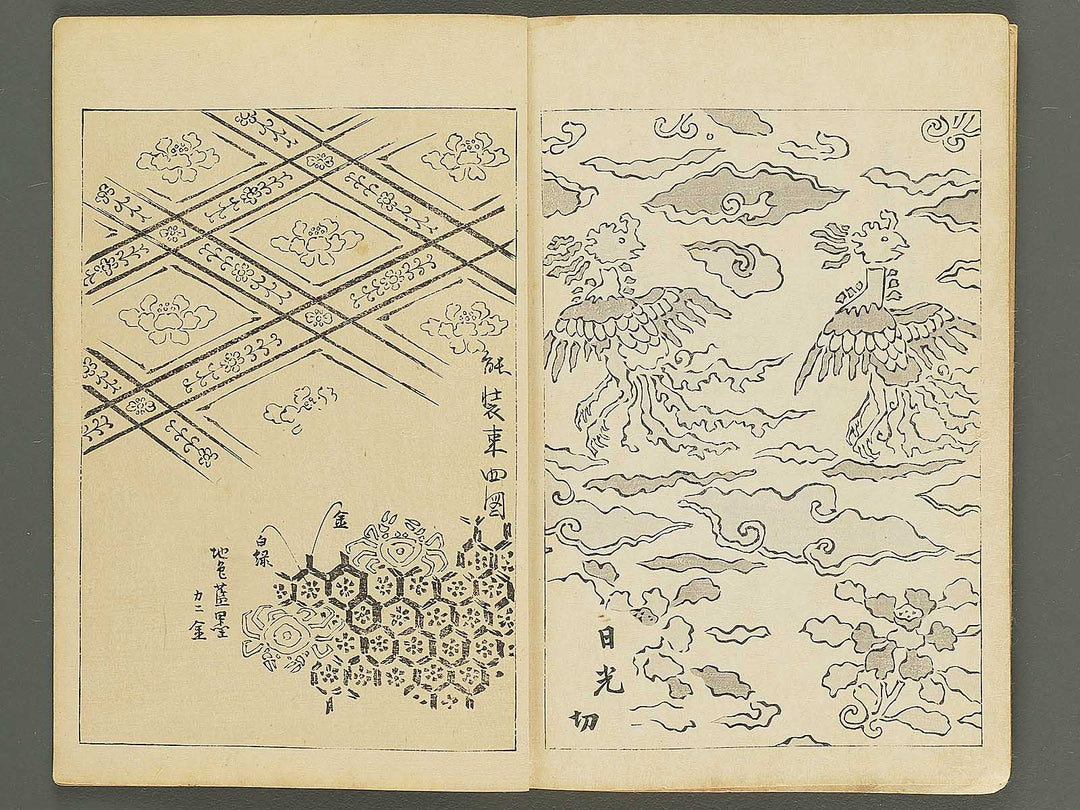 日光
切
能装束四図
金
白緑
地色藍墨
カニ金